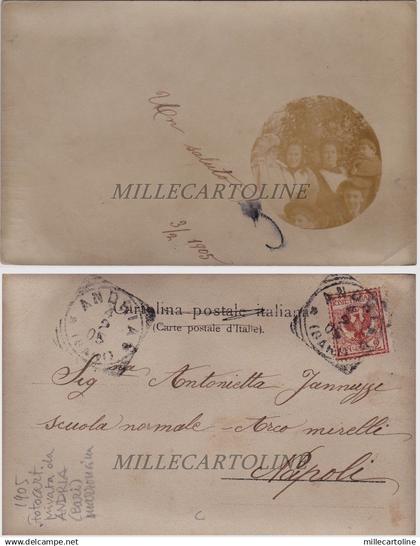 Un saluto
MILLECARTOLINE
3/2 1905
ANDRIA
(BARI)
Cartolina postale italiana
(Carte postale d'Italie).
Signa Antonietta Jannuzzi
scuola normale - Arco mirelli
MILLECARTOLINE
Napoli
1905
Fotocart.
privata da
ANDRIA
(Bari)
C
millecartoline
www.millecartoline.com